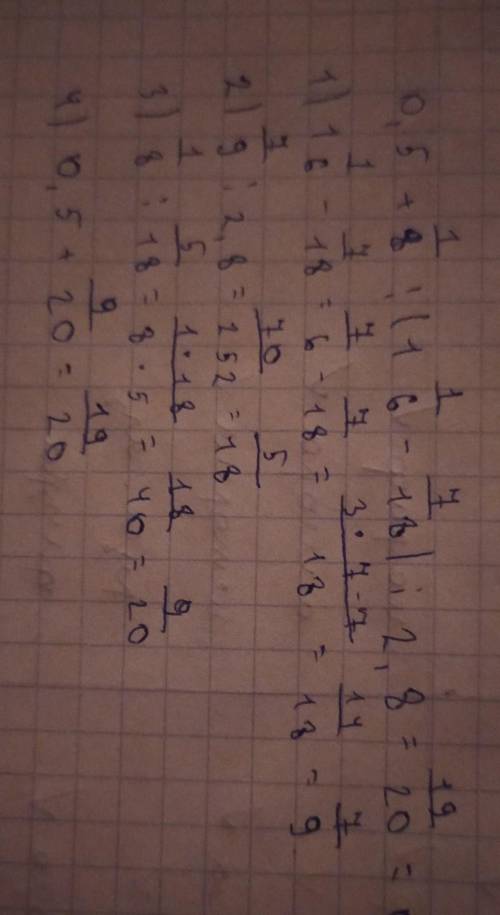 0,5 + 1/8 : (1 1/6 - 7/18) : 2,8 = 19/20 =
1) 1 1/6 - 7/18 = 7/6 - 7/18 = 3·7-7/18 = 14/18 = 7/9
2) 7/9 : 2,8 = 70/252 = 5/18
3) 1/8 : 5/18 = 1·18/8·5 = 18/40 = 9/20
4) 0,5 + 9/20 = 19/20